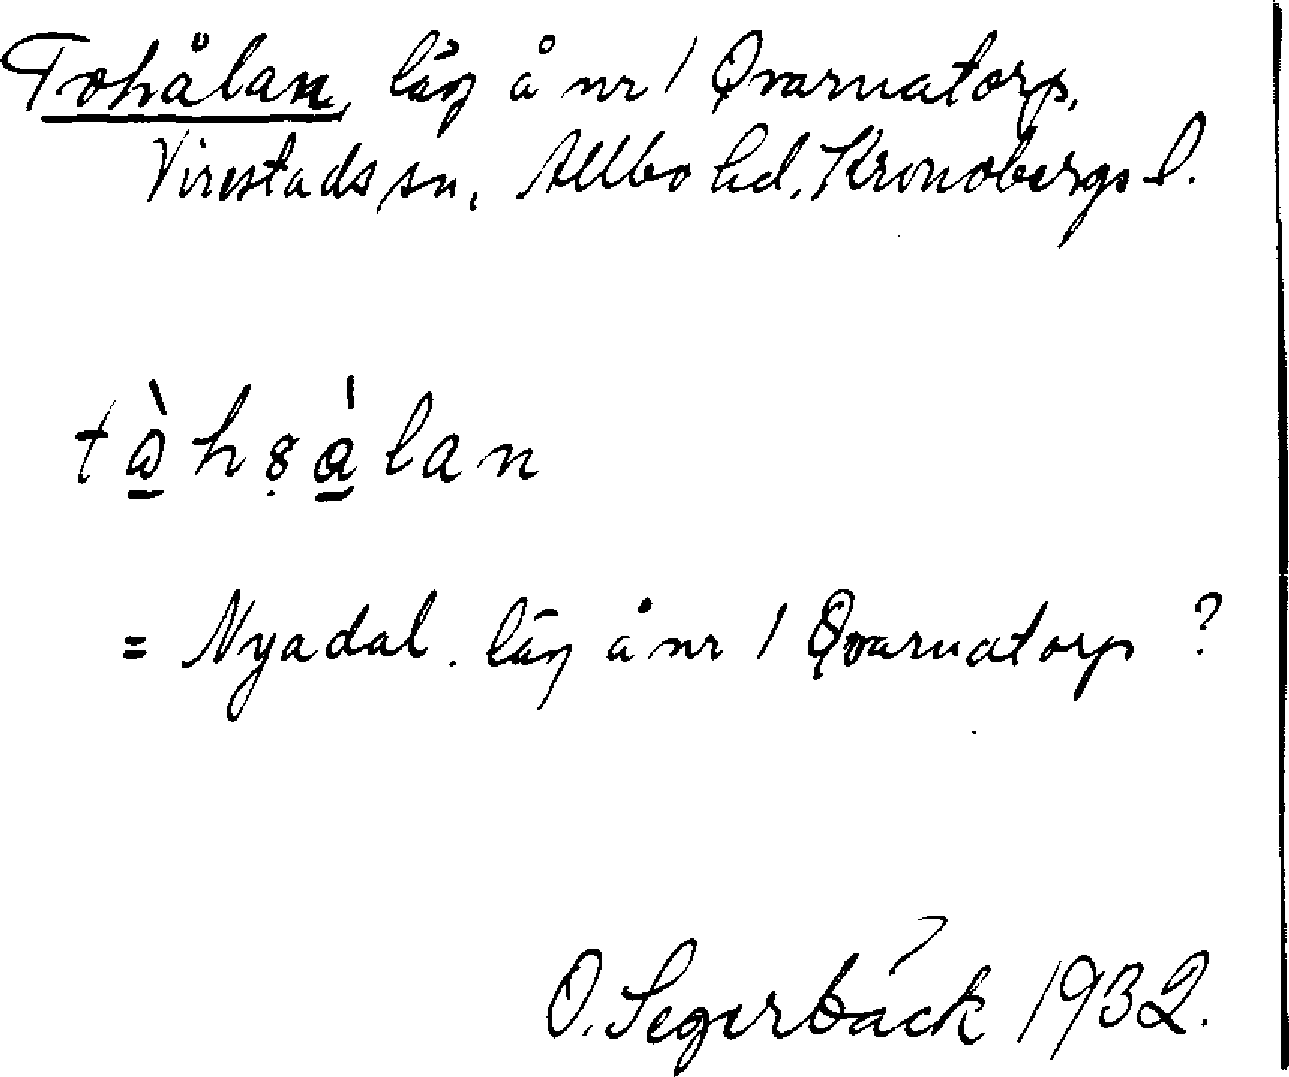 Tohålan, läg å nr 1 Qvarnatorp,
Virestads sn, Allbo hd. Kronobergs l.
tɷ̠̀hꝸ̣a̠̍lan
= Nyadal. läg å nr 1 Qvarnatorp ?
O. Segerbäck 1932.